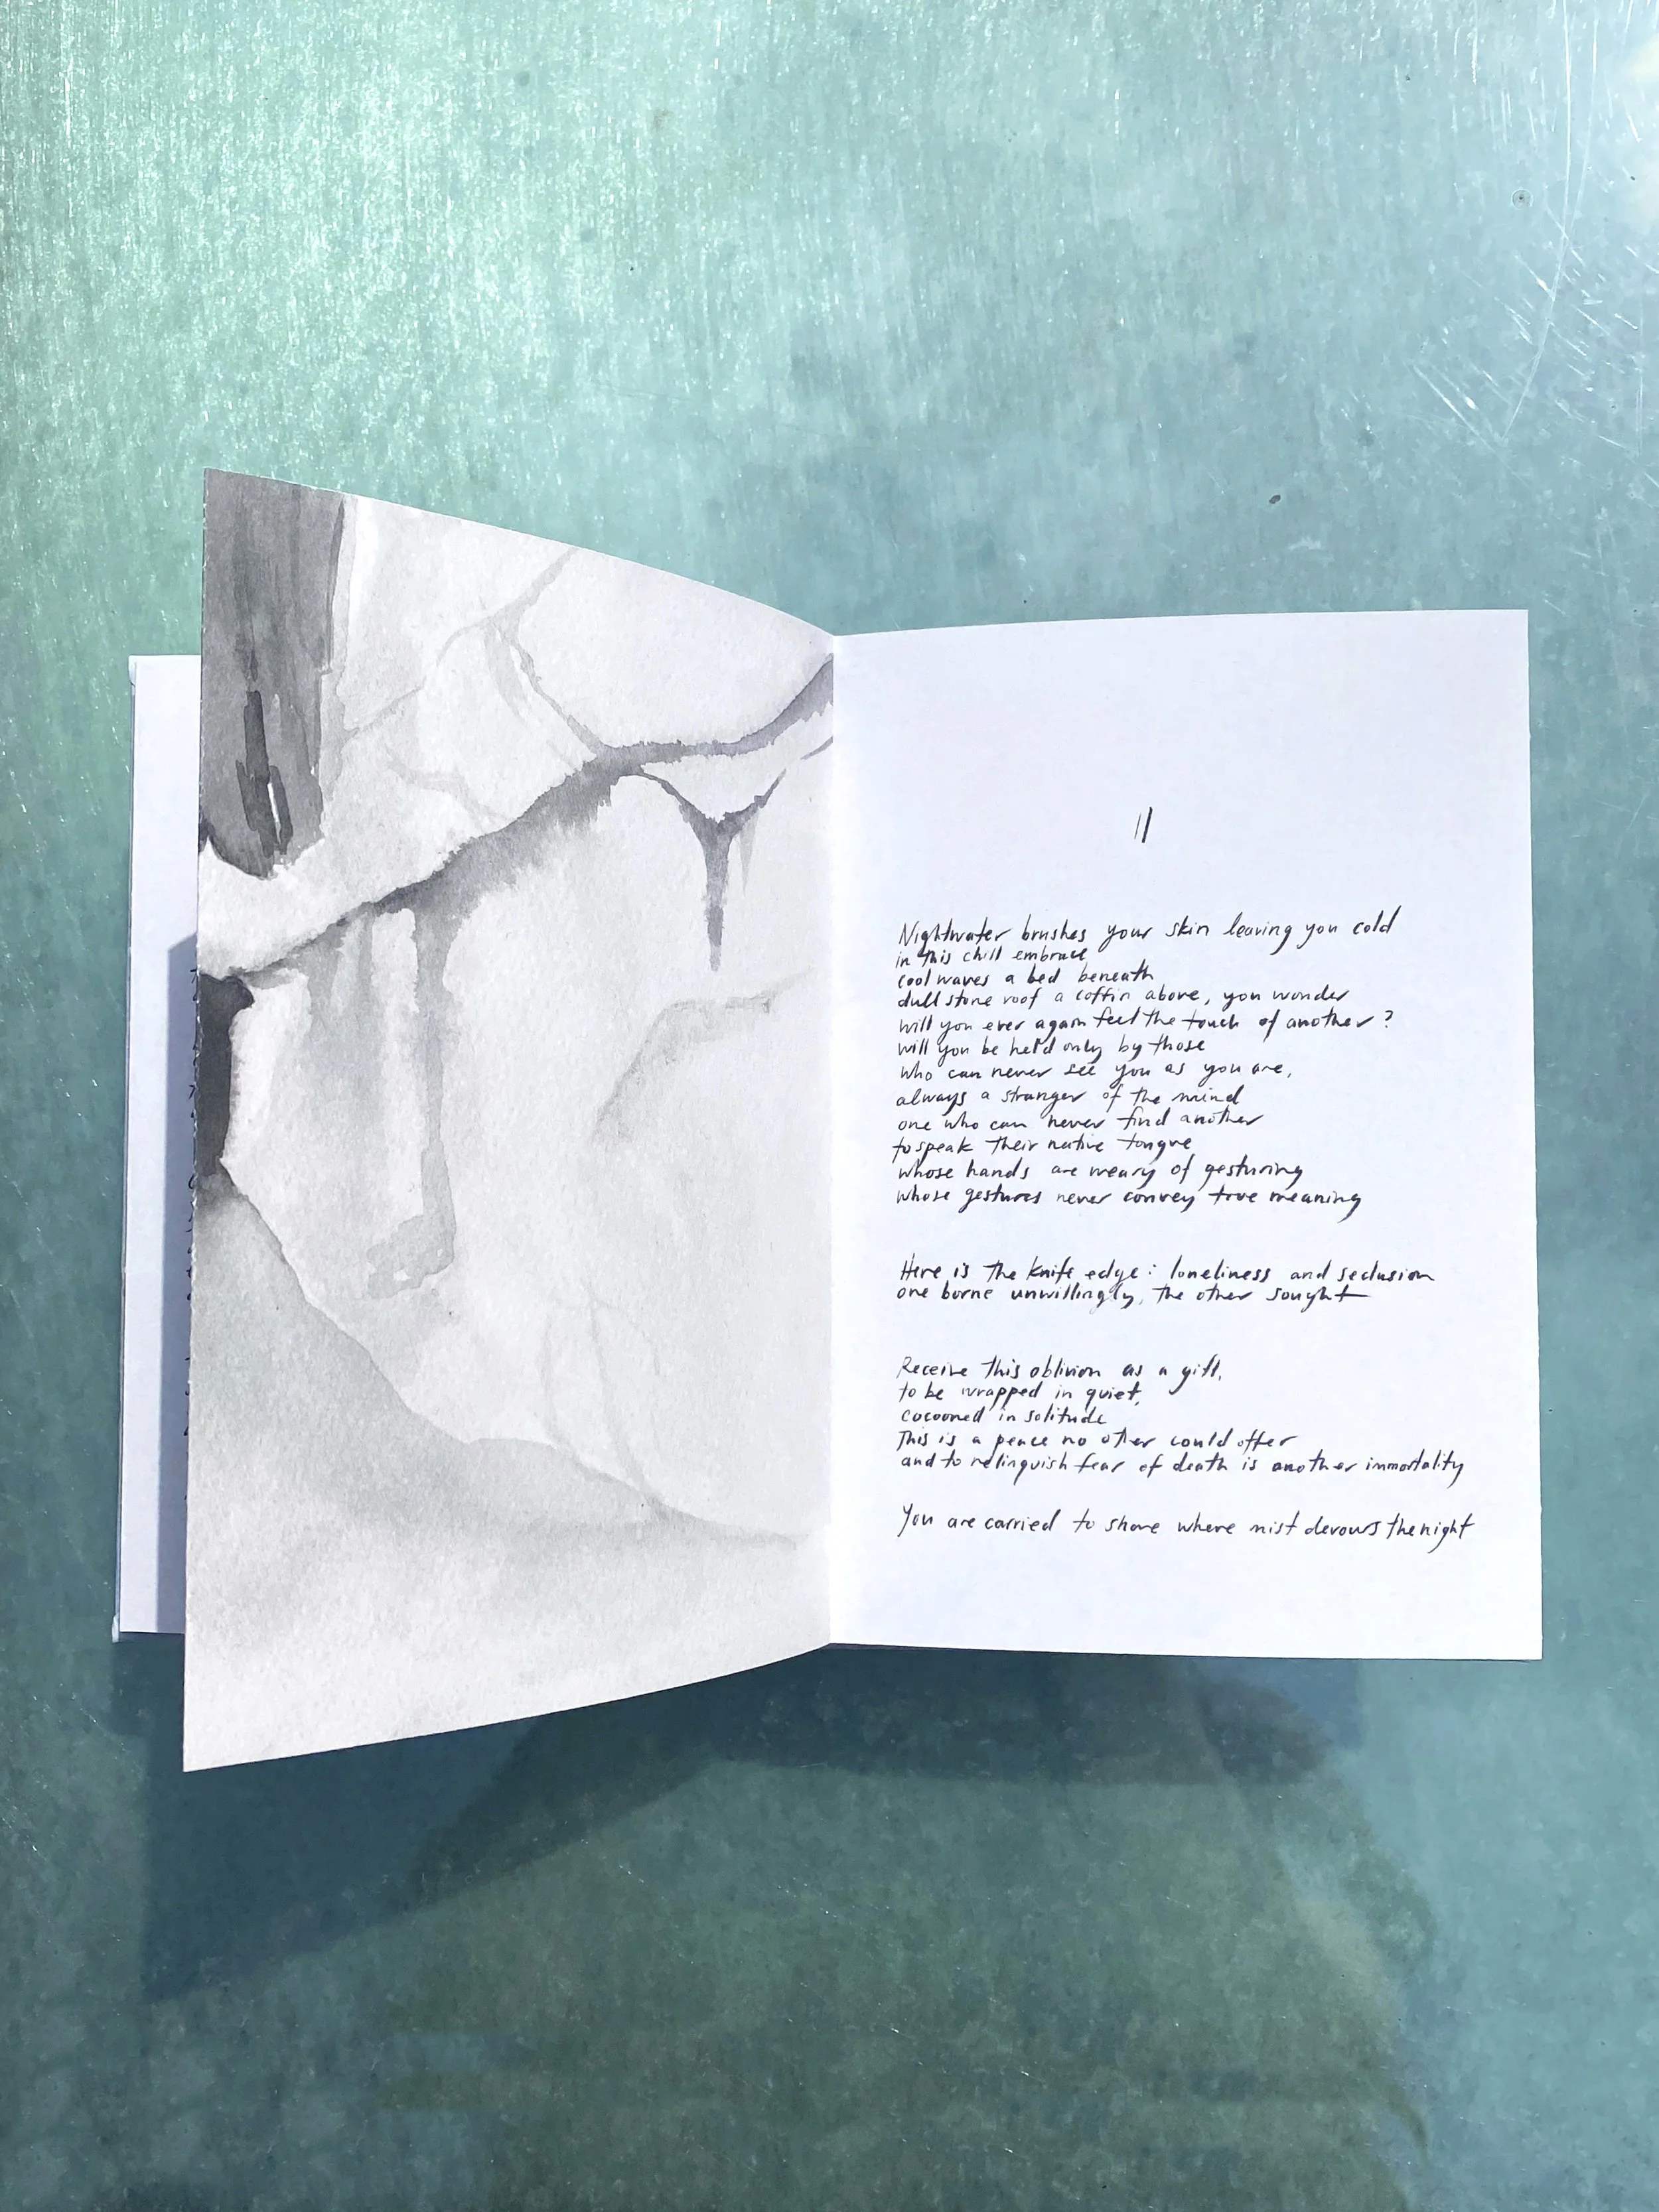 11
Nightwater brushes your skin leaving you cold
in this chill embrace
cool waves a bed beneath
dull stone roof a coffin above, you wonder
will you ever again feel the touch of another?
will you be held only by those
who can never see you as you are,
always a stranger of the mind
one who can never find another
to speak their native tongue
whose hands are weary of gesturing
whose gestures never convey true meaning
Here is the knife edge: loneliness and seclusion
one borne unwillingly, the other sought
Receive this oblivion as a gift,
to be wrapped in quiet,
cocooned in solitude
This is a peace no other could offer
and to relinquish fear of death is another immortality
You are carried to shore where mist devours the night